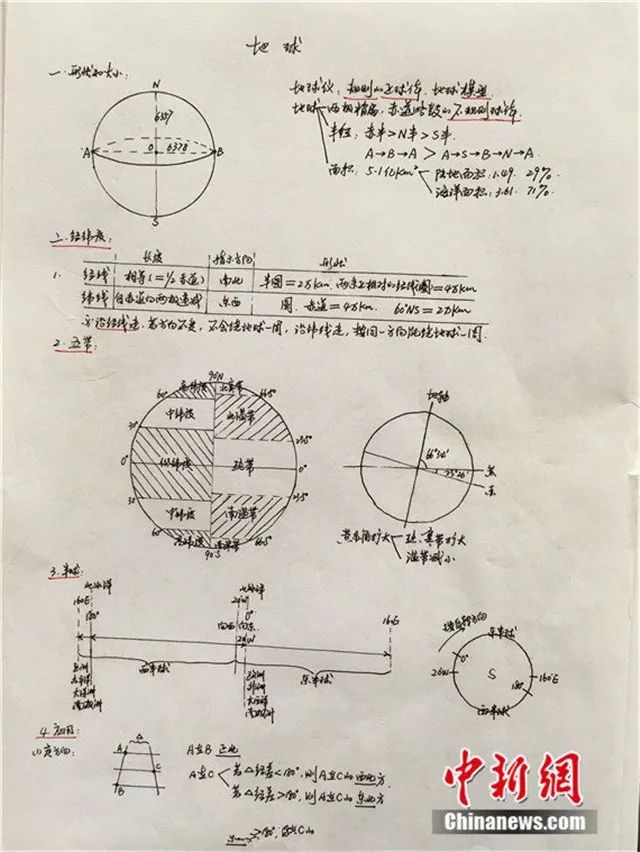 地球
一.形状和大小:
N
6357
A
O
6378
B
S
地球仪: 规则的正球体, 地球模型
地球—两极稍扁, 赤道略鼓的不规则球体
半径: 赤半>N半>S半.
A→B→A > A→S→B→N→A.
面积: 5.1亿km² 陆地面积: 1.49. 29%.
海洋面积: 3.61. 71%
二.经纬度:
长度 指示方向 形状
1. 经线 相等(=1/2赤道) 南北 半圆=2万km. 两条相对的经线圈=4万km
纬线 自赤道向两极递减 东西 圆. 赤道=4万km. 60°NS=2万km
沿经线走, 若方向不变, 不会绕地球一周, 沿纬线走, 指同一方向能绕地球一周.
2. 五带:
90°N
60° 高纬度 北寒带 66.5°
中纬度 北温带
30° 23.5°
0° 低纬度 热带 0°
30° 23.5°
中纬度 南温带
60° 高纬度 南寒带 66.5°
90°S
地轴
66°34'
23°26'
黄
赤
黄赤角扩大 热、寒带扩大
温带减小
3. 半球:
北冰洋 北冰洋
160°E 180° 20°W 0° 160°E
向西 向东
20°W
西半球 东半球
地球自转方向
东半球
0°
20°W
S
160°E
180°
西半球
4. 应用:
(1)定方向:
A
C
B
A在B 正北
A在C 若△经差<180°, 则A在C的西北方
若△经差>180°, 则A在C的东北方
中新网
Chinanews.com